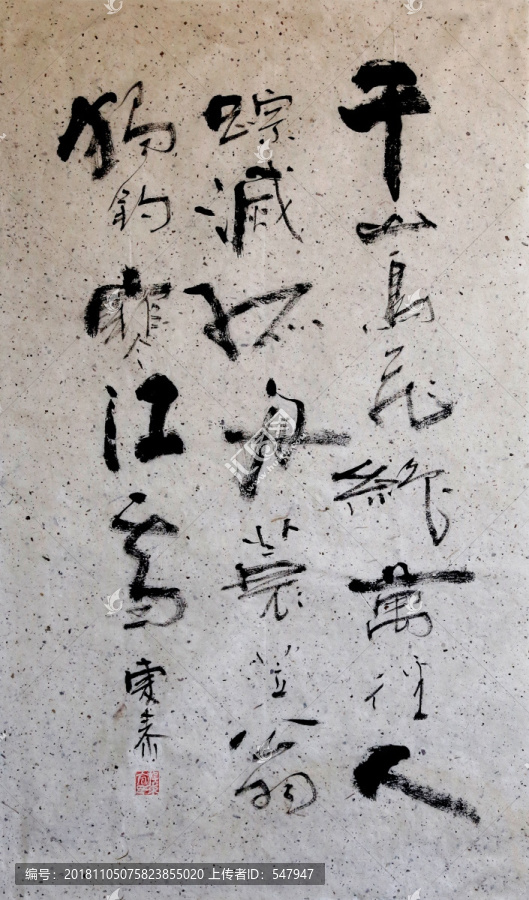 千山鳥飛絕萬徑人
踪滅孤舟蓑笠翁
獨釣寒江雪
编号：20181105075823855020 上传者ID：547947